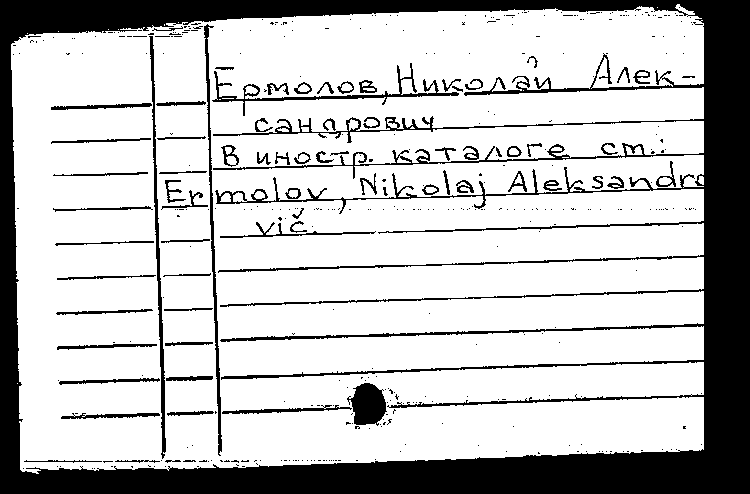 Ермолов, Николай Алек-
сандрович
В иностр. каталоге см.:
Ermolov, Nikolaj Aleksandro
vič.